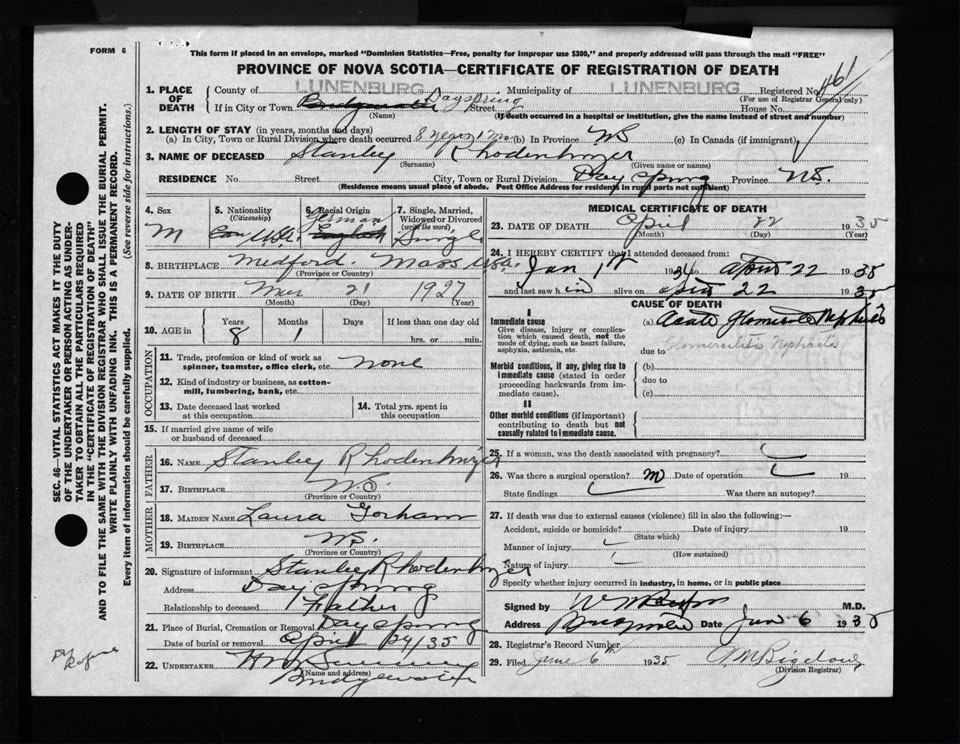 FORM 6
This form if placed in an envelope, marked "Dominion Statistics—Free, penalty for improper use $300," and properly addressed will pass through the mail "FREE"
PROVINCE OF NOVA SCOTIA—CERTIFICATE OF REGISTRATION OF DEATH
1. PLACE OF DEATH
County of LUNENBURG Municipality of LUNENBURG Registered No.
(For use of Registrar General only)
If in City or Town Dayspring Street House No.
(Name) (If death occurred in a hospital or institution, give the name instead of street and number)
2. LENGTH OF STAY (in years, months and days)
(a) In City, Town or Rural Division where death occurred 8 years 1 mo (b) In Province NS (c) In Canada (if immigrant)
3. NAME OF DECEASED Stanley Rhodenhizer
(Surname) (Given name or names)
RESIDENCE No. Street City, Town or Rural Division Day Spring Province N.S.
(Residence means usual place of abode. Post Office Address for residents in rural parts not sufficient)
4. Sex
M
5. Nationality
(Citizenship)
U.S.A.
6. Racial Origin
German
English
7. Single, Married, Widowed or Divorced
(write the word)
Single
8. BIRTHPLACE Medford. Mass USA.
(Province or Country)
9. DATE OF BIRTH Mar 21 1927
(Month) (Day) (Year)
10. AGE in
Years Months Days If less than one day old
8 1 hrs. or min.
OCCUPATION
11. Trade, profession or kind of work as spinner, teamster, office clerk, etc. none
12. Kind of industry or business, as cotton-mill, lumbering, bank, etc.
13. Date deceased last worked at this occupation
14. Total yrs. spent in this occupation
15. If married give name of wife or husband of deceased
FATHER
16. NAME Stanley Rhodenhizer
17. BIRTHPLACE N.S.
(Province or Country)
MOTHER
18. MAIDEN NAME Laura Gorham
19. BIRTHPLACE NS.
(Province or Country)
20. Signature of informant Stanley Rhodenhizer
Address Day Spring
Relationship to deceased Father
21. Place of Burial, Cremation or Removal Day spring
Date of burial or removal April 24/35
22. UNDERTAKER
(Name and address)
Bridgewater
MEDICAL CERTIFICATE OF DEATH
23. DATE OF DEATH April 22 1935
(Month) (Day) (Year)
24. I HEREBY CERTIFY that I attended deceased from:
Jan 1st 1934 to April 22 1935
and last saw him alive on April 22 1935
CAUSE OF DEATH
I
Immediate cause
Give disease, injury or complication which caused death, not the mode of dying, such as heart failure, asphyxia, asthenia, etc.
(a) Acute Nephritis
due to
Morbid conditions, if any, giving rise to immediate cause (stated in order proceeding backwards from immediate cause).
(b)
due to
(c)
II
Other morbid conditions (if important) contributing to death but not causally related to immediate cause.
25. If a woman, was the death associated with pregnancy?
26. Was there a surgical operation? Date of operation 19
State findings Was there an autopsy?
27. If death was due to external causes (violence) fill in also the following:—
Accident, suicide or homicide? Date of injury 19
(State which)
Manner of injury
(How sustained)
Nature of injury
Specify whether injury occurred in industry, in home, or in public place
Signed by M.D.
Address Bridgewater Date Jun 6 1935
28. Registrar's Record Number
29. Filed June 6th 1935
(Division Registrar)
SEC. 46—VITAL STATISTICS ACT MAKES IT THE DUTY
OF THE UNDERTAKER OR PERSON ACTING AS UNDER-
TAKER TO OBTAIN ALL THE PARTICULARS REQUIRED
IN THE "CERTIFICATE OF REGISTRATION OF DEATH"
AND TO FILE THE SAME WITH THE DIVISION REGISTRAR WHO SHALL ISSUE THE BURIAL PERMIT.
WRITE PLAINLY WITH UNFADING INK. THIS IS A PERMANENT RECORD.
Every item of information should be carefully supplied. (See reverse side for instructions.)